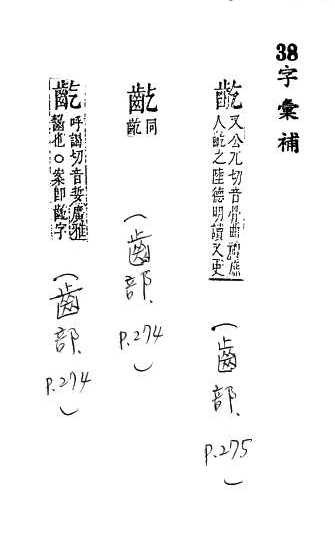 38字彙補
又公兀切音骨曲禮庶
人齕之陸德明讀又更
(齒部.
P.275
)
同
(齒部.
P.274
)
呼謁切音 廣雅
齧也○案即齕字
(齒部.
P.274
)